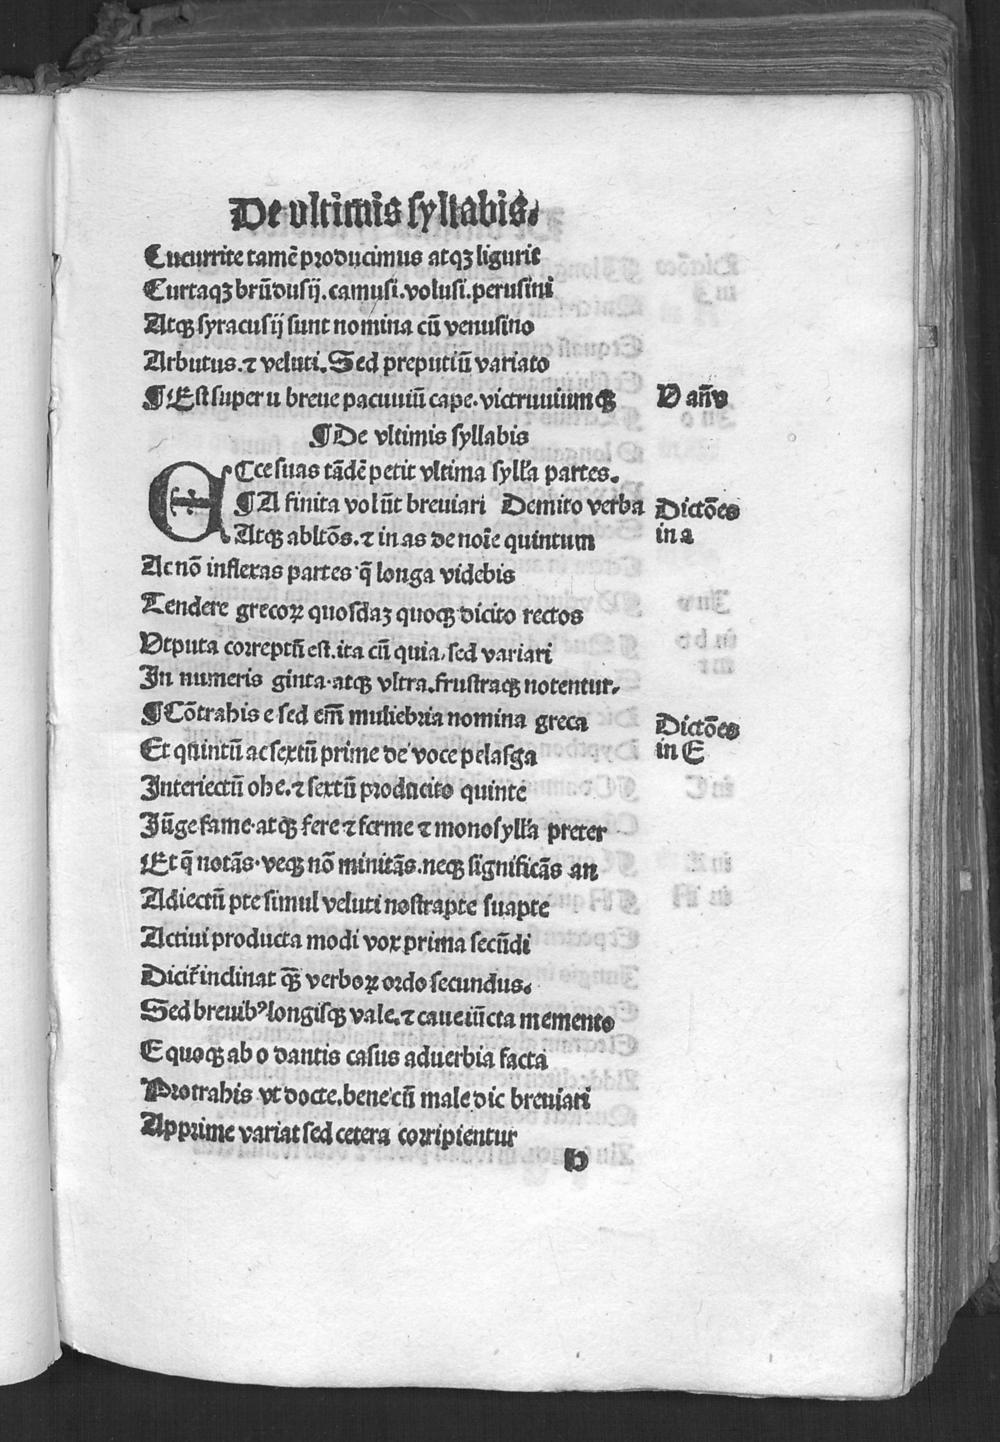 De vltimis syllabis.
Cucurrite tamē producimus atqꝫ ligurit
Curtaqꝫ brūdusij. camusi. volusi. perusini
Atqꝫ syracusij sunt nomina cū venusino
Arbutus. ⁊ veluti. Sed preputiū variato
¶ Est super u breue pacuuiū cape. victruuiumqꝫ
V añ v
¶ De vltimis syllabis
ECce suas tādē petit vltima sylľa partes.
¶ A finita volūt breuiari Demito verba
Dictōes
Atqꝫ abltōs. ⁊ in as de noīe quintum
in a
Ac nō inflexas partes q̄ longa videbis
Tendere grecoꝝ quosdaꝫ quoqꝫ dicito rectos
Vtputa correptū est. ita cū quia, sed variari
In numeris ginta. atqꝫ vltra. frustraqꝫ notentur.
¶ Cōtrahis e sed em̄ muliebria nomina greca
Dictōes
Et quintū ac sextū prime de voce pelasga
in E
Interiectū ohe. ⁊ sextū producito quinte
Jūge fame. atqꝫ fere ⁊ ferme ⁊ monosylľa preter
Et q̄ notās. veqꝫ nō minitās. neqꝫ significās an
Adiectū pte simul veluti nostrapte suapte
Actiui producta modi vox prima secūdi
Dicit̄ inclinat qꝫ̄ verboꝝ ordo secundus.
Sed breuibꝰ longisqꝫ vale. ⁊ caue iūcta memento
E quoqꝫ ab o dantis casus aduerbia facta
Protrahis vt docte. bene cū male dic breuiari
Apprime variat sed cetera corripientur
b